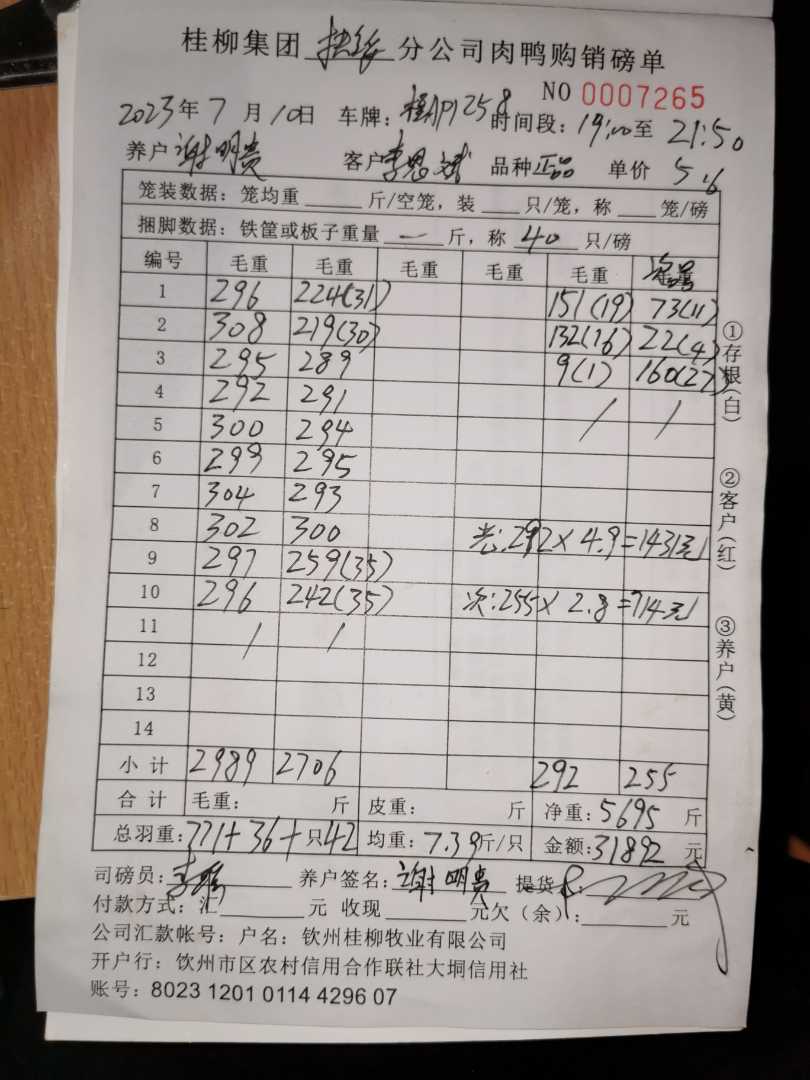 桂柳集团 分公司肉鸭购销磅单
NO 0007265
2023年7月10日 车牌：桂AP1258 时间段：19:00至21:50
养户 谢明贵 客户 李恩斌 品种 正品 单价 5.6
笼装数据：笼均重____斤/空笼，装___只/笼，称___笼/磅
捆脚数据：铁筐或板子重量 一 斤，称 40 只/磅
编号 毛重 毛重 毛重 毛重 毛重
1 296 224(31) 151(19) 73(11)
2 308 219(30) 132(16) 22(4)
3 295 289 9(1) 160(27)
4 292 291 / /
5 300 294
6 299 295
7 304 293
8 302 300 光:292×4.9=1431元
9 297 259(35)
10 296 242(35) 次:255×2.8=714元
11 / /
12
13
14
小计 2989 2706 292 255
合计 毛重： 斤 皮重： 斤 净重：5695 斤
总羽重：771+36+只42 均重：7.39斤/只 金额：31892 元
司磅员： 养户签名：谢明贵 提货
付款方式：汇______元 收现______元欠（余）：______元
公司汇款帐号：户名：钦州桂柳牧业有限公司
开户行：钦州市区农村信用合作联社大垌信用社
账号：8023 1201 0114 4296 07
①存根（白）
②客户（红）
③养户（黄）